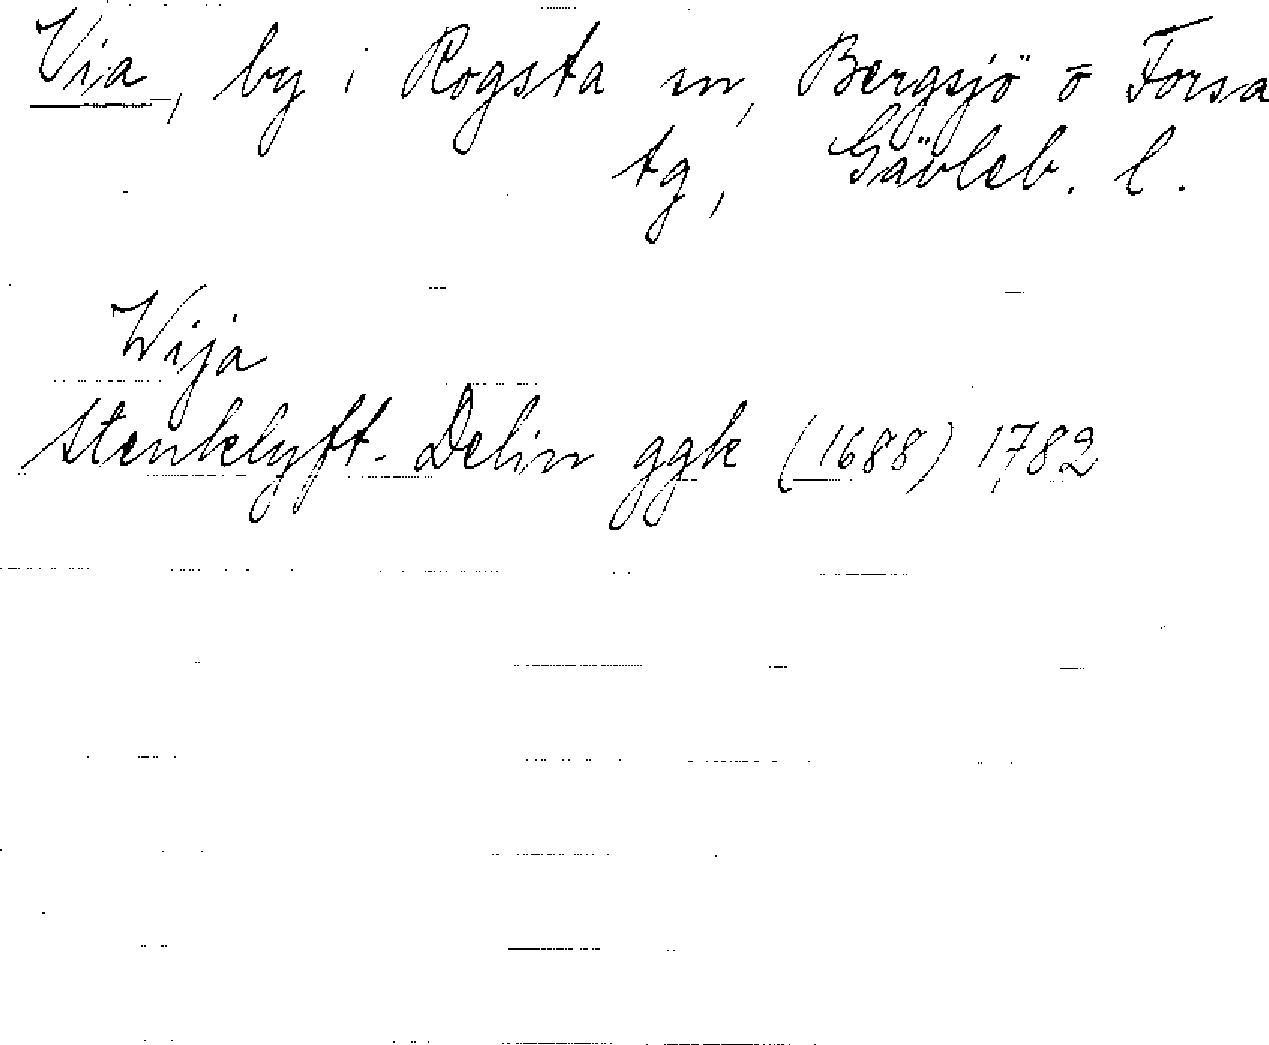 Via, by i Rogsta sn, Bergsjö o Forsa
tg, Gävleb. l.
Wija
Stenklyft- Delin ggk (1688) 1782